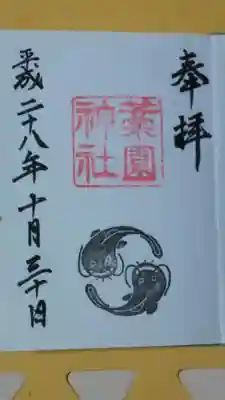 奉拝
葉園
神社
平成二十八年十月三十日